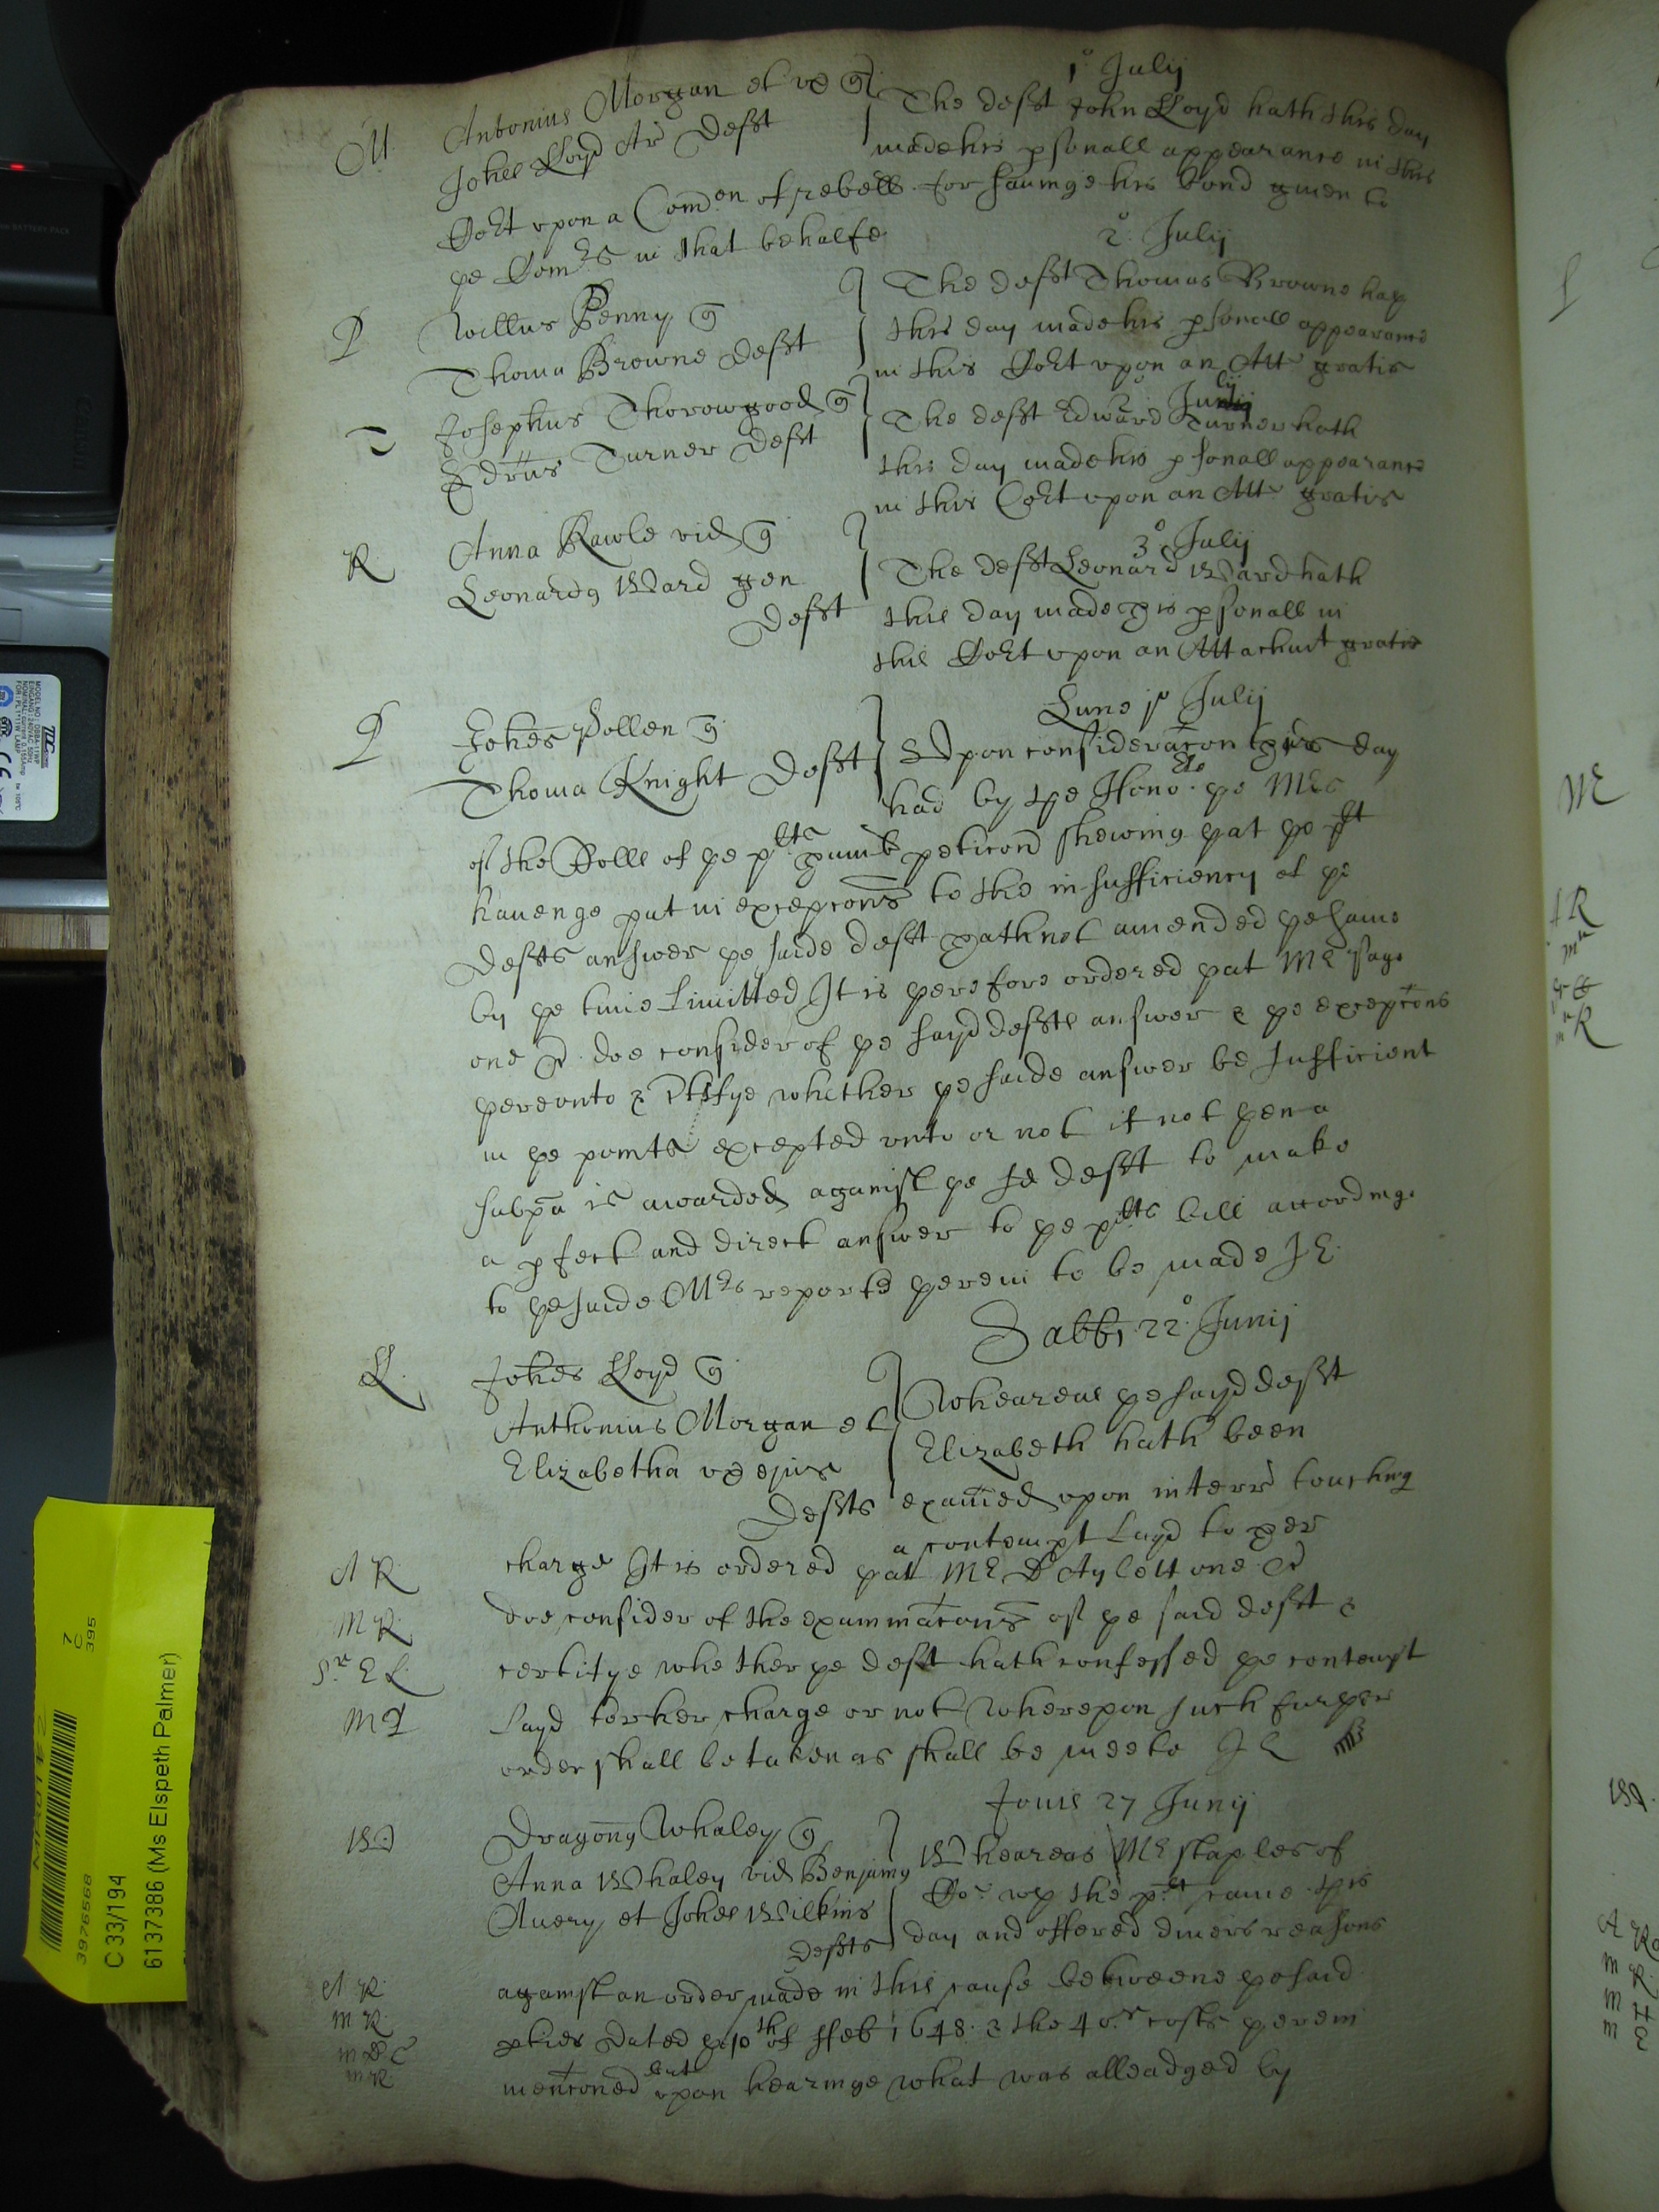 1° Julij
M Antonius Morgan et ux q
Johes Lloyd Ar Defft
The defft John Lloyd hath this day
made his psonall appearance in this
Cort upon a Comon of rebell for saving his bond given to
ye Comrs in that behalfe
2° Julij
P Willus Penny q
Thoma Browne Defft
The defft Thomas Browne hay
this day made his psonall appearance
in this Cort upon an Att gratis
2° Julij
T Josephus Thorowgood q
Edrus Turner Defft
The defft Edward Turner hath
this day made his psonall appearance
in this Cort upon an Att gratis
3° Julij
R Anna Rawle vid q
Leonardus Ward gen
Defft
The defft Leonard Ward hath
this day made his psonall in
this Cort upon an Attachmt gratis
Lune jo Julij
P Johes Pollen q
Thoma Knight Defft
Upon consideracon this day
had by the Honoble ye Mr
of the Rolls of ye plts humb peticon shewing yat ye plt
haueinge put in excepcons to the insufficiency of ye
Deffts answer ye saide defft hath not amended ye same
by ye time Limitted It is yerefore ordered yat Mr Page
one &c doe consider of ye sayd deffts answer & ye excepcons
yereunto & Ctifye whether ye saide answer be sufficient
in ye points excepted unto or not if not yen a
subpa is awarded against ye sd defft to make
a pfect and direct answer to ye plts bill accordinge
to ye saide Mrs reporte yerein to be made J E
Sabbi 22° Junij
Ll Johes Lloyd q
Anthonius Morgan et
Elizabetha ux ejus
Deffts
Wheareas ye sayd defft
Elizabeth hath been
examed upon interr touching
a contempt Layd to her
A R charge It is ordered yat Mr Dr Aylett one &c
M R doe consider of the examinacons of ye said defft &
Sr E L certifye whether ye defft hath confessed ye contempt
M P Layd to her charge or not Whereupon such furyer
order shall be taken as shall be meete J E
Jovis 27 Junij
W Dragonus Whaley q
Anna Whaley vid Benjamus
Avery et Johes Wilkins
deffts
Wheareas Mr staples of
Co. wth the plt came this
day and offered divers reasons
A R against an order made in this cause betweene ye said
M R pties Dated ye 10th of ffeb 1648 & the 40s costs yerein
M D C
M R mencioned but upon hearinge what was alleadged by
MODEL NO.: DSBA-17WP
EINGANG: 240VAC 50Hz
C 33/194
6137386 (Ms Elspeth Palmer)
3976568
7
C
395